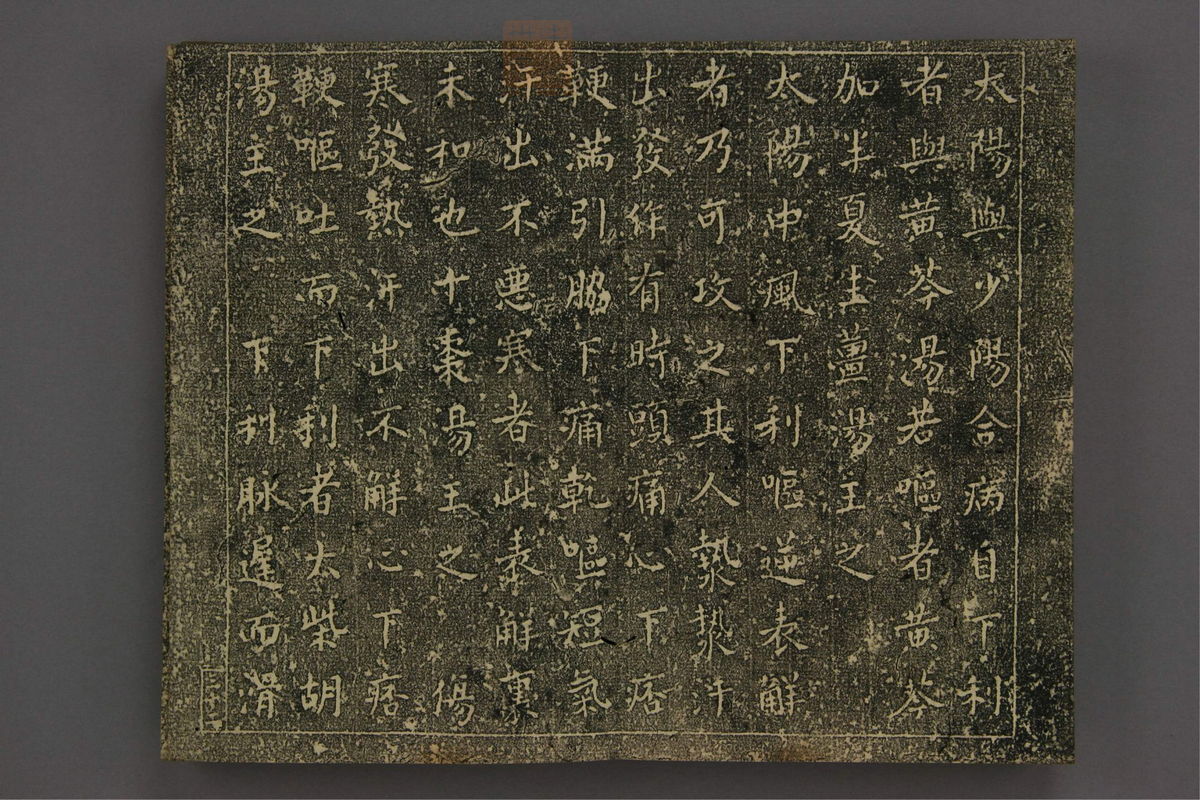 太陽與少陽合病自下利
者與黃芩湯若嘔者黃芩
加半夏生薑湯主之
太陽中風下利嘔逆表解
者乃可攻之其人漐漐汗
出發作有時頭痛心下痞
鞕滿引脇下痛乾嘔短氣
汗出不惡寒者此表解裏
未和也十棗湯主之傷
寒發熱汗出不解心下痞
鞕嘔吐而下利者太柴胡
湯主之 下利脉遲而滑